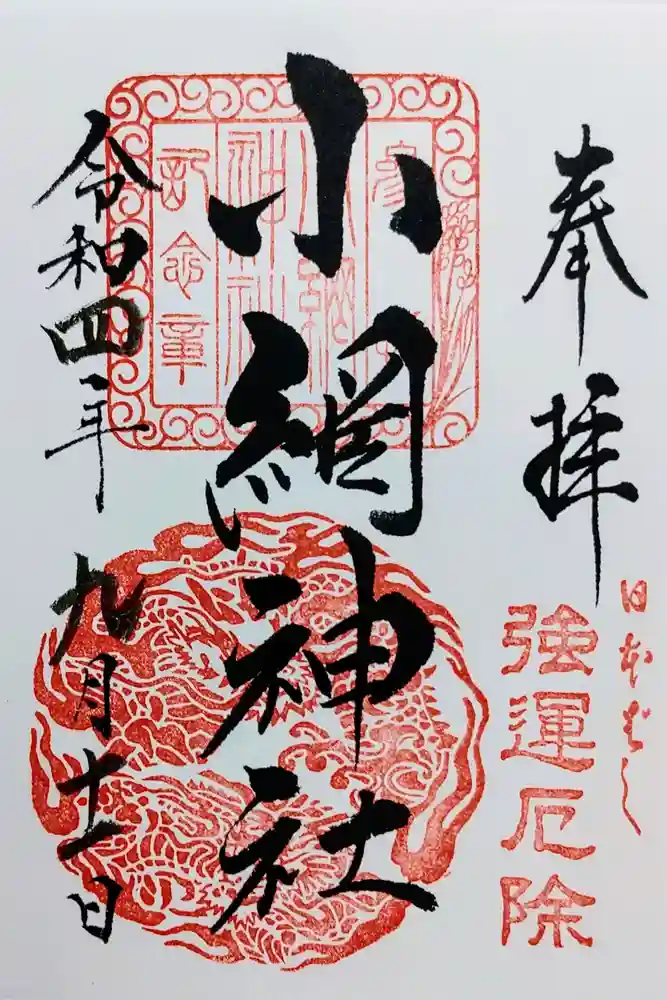 奉拝
日本ばし
強運厄除
小網神社
令和四年九月十一日
小網
神社
記念章